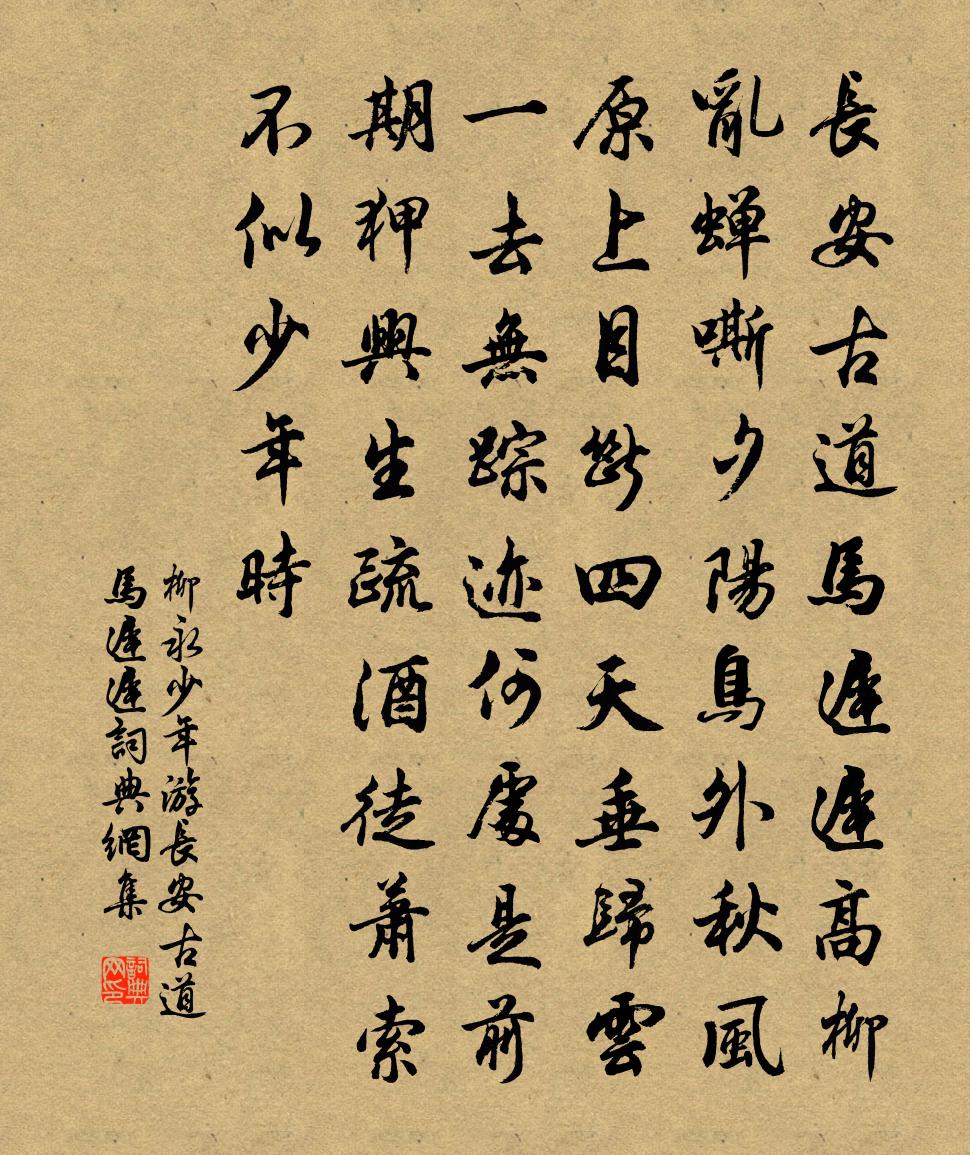 長安古道馬遲遲高柳
亂蟬嘶夕陽鳥外秋風
原上目斷四天垂歸雲
一去無踪迹何處是前
期狎興生疏酒徒蕭索
不似少年時
柳永少年游長安古道
馬遲遲詞典網集
詞典网印